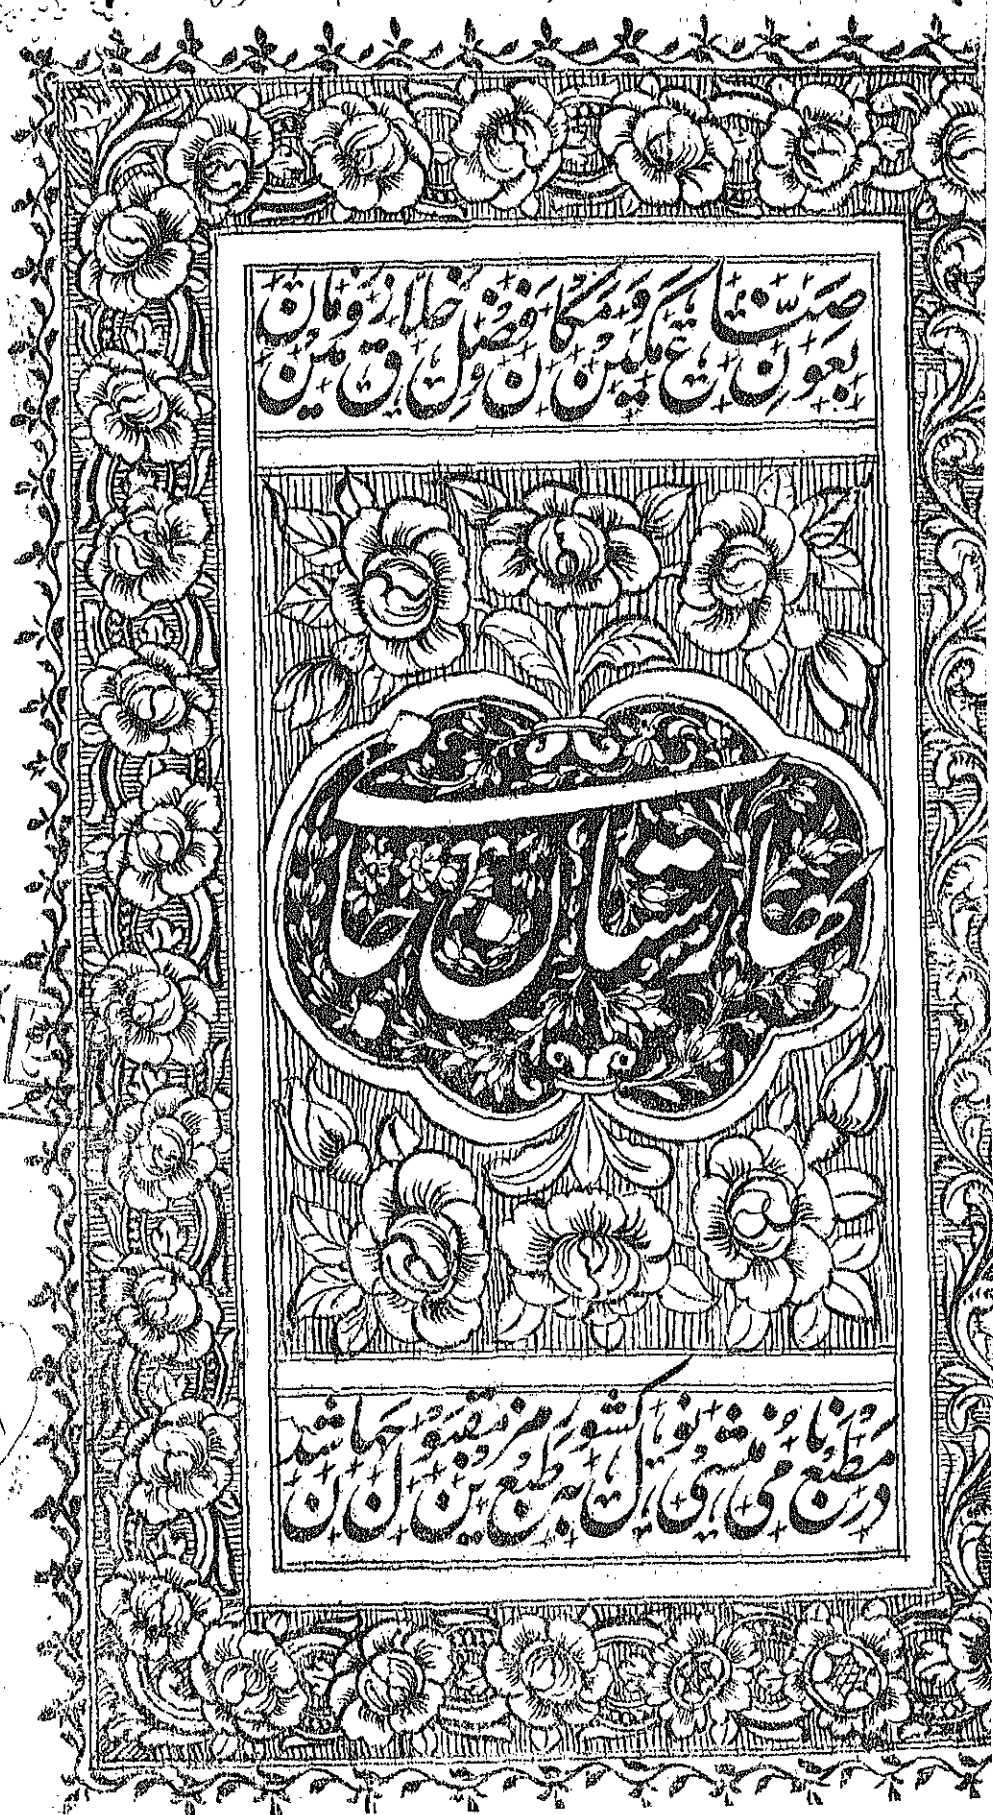 بعون صناع مکین و مکان و فضل خلاق زمین و زمان
بهارستان جامی
در مطبع نامی منشی نولکشور بطبع مزین مقبول جهان شد